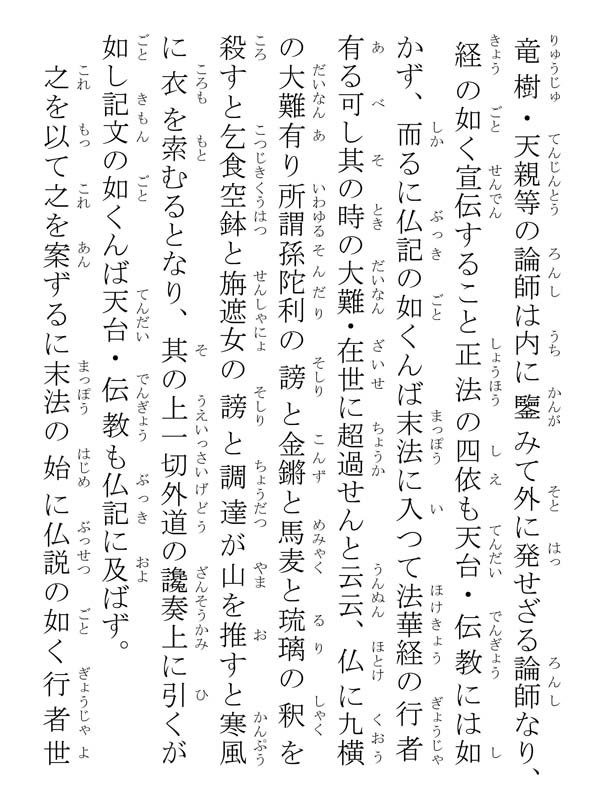 竜樹・天親等の論師は内に鑒みて外に発せざる論師なり、
経の如く宣伝すること正法の四依も天台・伝教には如
かず、而るに仏記の如くんば末法に入つて法華経の行者
有る可し其の時の大難・在世に超過せんと云云、仏に九横
の大難有り所謂孫陀利の謗と金鏘と馬麦と琉璃の釈を
殺すと乞食空鉢と旃遮女の謗と調達が山を推すと寒風
に衣を索むるとなり、其の上一切外道の讒奏上に引くが
如し記文の如くんば天台・伝教も仏記に及ばず。
之を以て之を案ずるに末法の始に仏説の如く行者世